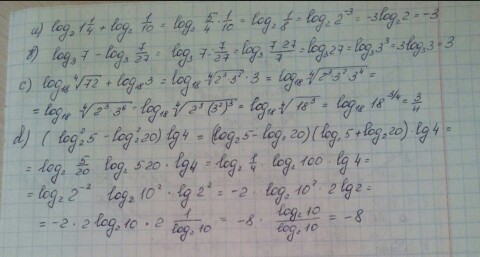 a) log₂ 1 1/4 + log₂ 1/10 = log₂ 5/4 · 1/10 = log₂ 1/8 = log₂ 2⁻³ = -3log₂2 = -3
b) log₃ 7 - log₃ 7/27 = log₃ 7 : 7/27 = log₃ 7·27/7 = log₃ 27 = log₃ 3³ = 3log₃3 = 3
c) log₁₈ ⁴√72 + log₁₈ 3 = log₁₈ ⁴√(2³3²) · 3 = log₁₈ ⁴√(2³3²3⁴) =
= log₁₈ ⁴√(2³3⁶) = log₁₈ ⁴√(2³(3²)³) = log₁₈ ⁴√(18³) = log₁₈ 18^(3/4) = 3/4
d) (log₂²5 - log₂²20) lg4 = (log₂5 - log₂20)(log₂5 + log₂20) · lg4 =
= log₂ 5/20 · log₂ 5·20 · lg4 = log₂ 1/4 · log₂ 100 · lg4 =
= log₂ 2⁻² · log₂ 10² · lg 2² = -2 · log₂ 10² · 2lg2 =
= -2 · 2 log₂10 · 2 1/log₂10 = -8 · log₂10/log₂10 = -8